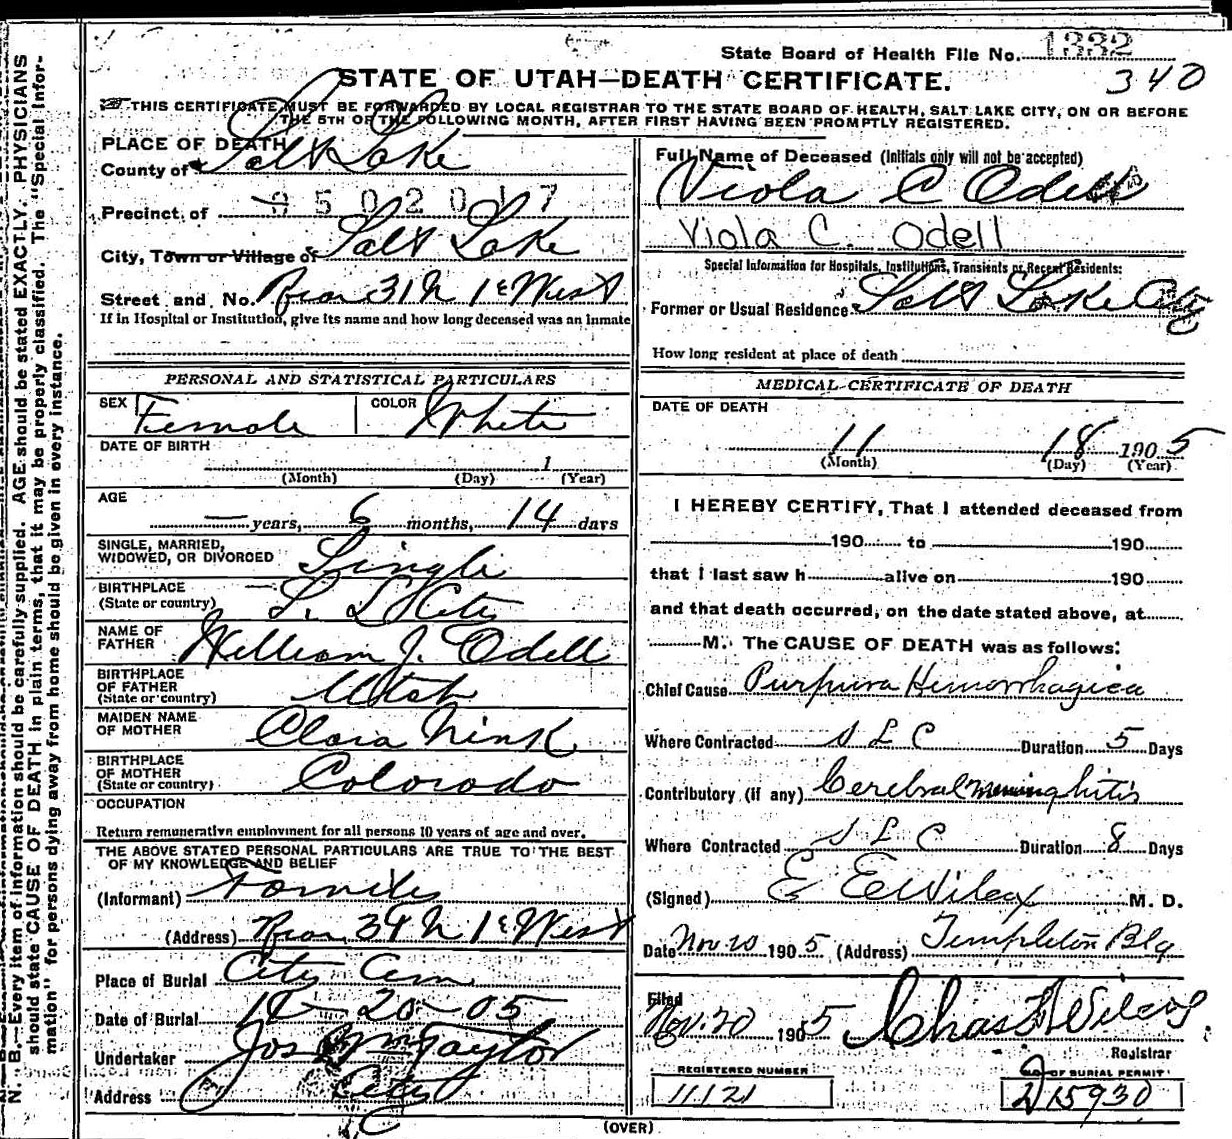 State Board of Health File No. 1332
340
STATE OF UTAH—DEATH CERTIFICATE.
THIS CERTIFICATE MUST BE FORWARDED BY LOCAL REGISTRAR TO THE STATE BOARD OF HEALTH, SALT LAKE CITY, ON OR BEFORE
THE 5TH OF THE FOLLOWING MONTH, AFTER FIRST HAVING BEEN PROMPTLY REGISTERED.
PLACE OF DEATH
County of Salt Lake
Precinct of
9502017
City, Town or Village of Salt Lake
Street and No. Rear 31 N 1st West
If in Hospital or Institution, give its name and how long deceased was an inmate
PERSONAL AND STATISTICAL PARTICULARS
SEX Female COLOR White
DATE OF BIRTH
1
(Month) (Day) (Year)
AGE
— years, 6 months, 14 days
SINGLE, MARRIED,
WIDOWED, OR DIVORCED Single
BIRTHPLACE
(State or country) S. L City
NAME OF
FATHER William J. Odell
BIRTHPLACE
OF FATHER
(State or country) Utah
MAIDEN NAME
OF MOTHER Clara Nink
BIRTHPLACE
OF MOTHER
(State or country) Colorado
OCCUPATION
Return remunerative employment for all persons 10 years of age and over.
THE ABOVE STATED PERSONAL PARTICULARS ARE TRUE TO THE BEST
OF MY KNOWLEDGE AND BELIEF
(Informant) Family
(Address) Rear 34 N 1st West
Place of Burial City Cem
Date of Burial 11-20-05
Undertaker Jos Wm Taylor
Address City
Full Name of Deceased (Initials only will not be accepted)
Viola C Odell
Viola C. Odell
Special Information for Hospitals, Institutions, Transients or Recent Residents:
Former or Usual Residence Salt Lake City
How long resident at place of death
MEDICAL CERTIFICATE OF DEATH
DATE OF DEATH
11 18 1905
(Month) (Day) (Year)
I HEREBY CERTIFY, That I attended deceased from
190 to 190
that I last saw h alive on 190
and that death occurred, on the date stated above, at
M. The CAUSE OF DEATH was as follows:
Chief Cause Purpura Hemorrhagica
Where Contracted S L C Duration 5 Days
Contributory (if any) Cerebral
Where Contracted S L C Duration 8 Days
(Signed) E E Wilcox M. D.
Date Nov 20 1905 (Address) Templeton Blg
Filed
Nov. 20 1905 Chas Wilcox
Registrar
REGISTERED NUMBER
11121
NO. OF BURIAL PERMIT
D15930
(OVER)
N. B.—Every item of information should be carefully supplied. AGE should be stated EXACTLY. PHYSICIANS
should state CAUSE OF DEATH in plain terms, that it may be properly classified. The "Special Infor-
mation" for persons dying away from home should be given in every instance.